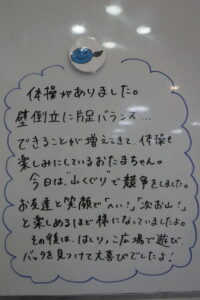 体操がありました。
壁倒立に片足バランス...
できることが増えてきて、体操も
楽しみにしているおたまちゃん。
今日は"山くぐり"で競争をしました。
お友達と笑顔で「へい!」「次お山!」
と楽しめるほど様になっていましたよ。
その後は、はしりっこ広場で遊び、
バッタを見つけて大喜びでしたよ!